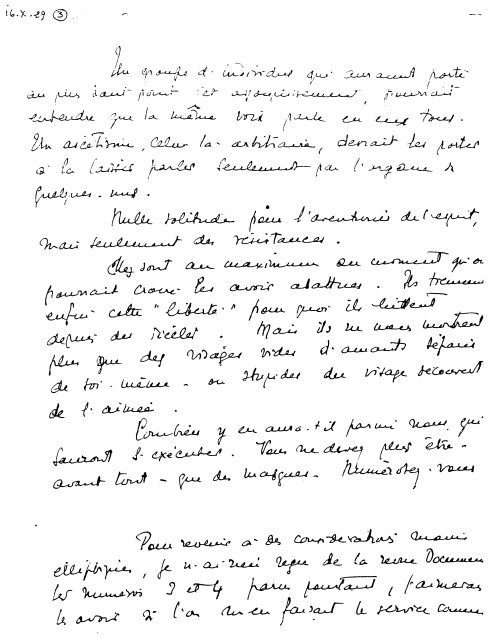 16.X.29 3
Un groupe d'individus qui auraient porté
au plus haut point cet assouplissement, pourrait
entendre que la même voix parle en eux tous.
Un ascétisme, celui-là arbitraire, devrait les porter
à la laisser parler seulement par l'organe de
quelques-uns.
Nulle solitude pour l'aventurier de l'esprit,
mais seulement des résistances.
Elles sont au maximum au moment qu'on
pourrait croire les avoir abattues. Ils tiennent
enfin cette "liberté" pour quoi ils luttent
depuis des siècles. Mais ils ne nous montrent
plus que des visages vides d'amants séparés
de soi-même - ou stupides du visage découvert
de l'aimée.
Combien y en aura-t-il parmi nous qui
sauront s'exécuter. Vous ne devez plus être -
avant tout - que des masques. Numérotez-vous
Pour revenir à des considérations moins
elliptiques, je n'ai rien reçu de la revue Documents
les numéros 3 et 4 parus pourtant, j'aimerais
les avoir si l'on m'en faisait le service comme